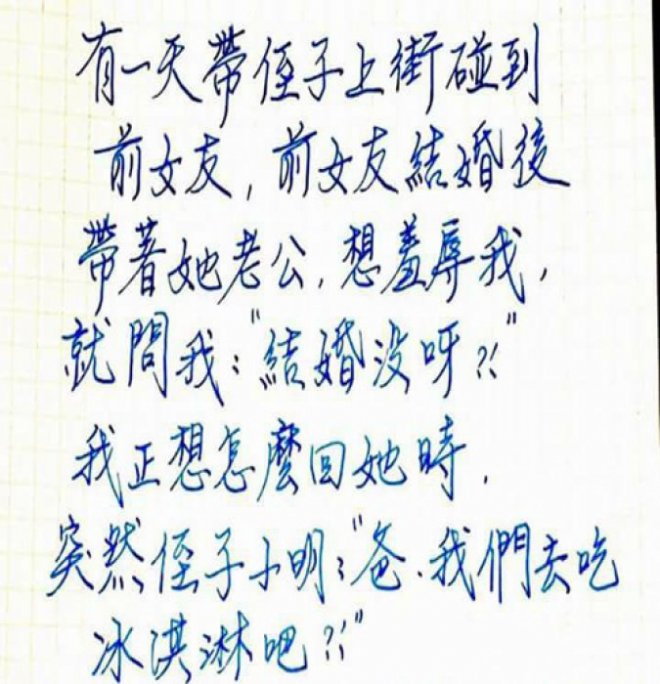 有一天帶侄子上街碰到
前女友,前女友結婚後
帶著她老公,想羞辱我,
就問我:"結婚没呀?!"
我正想怎麼回她時,
突然侄子小明:"爸.我們去吃
冰淇淋吧?!"